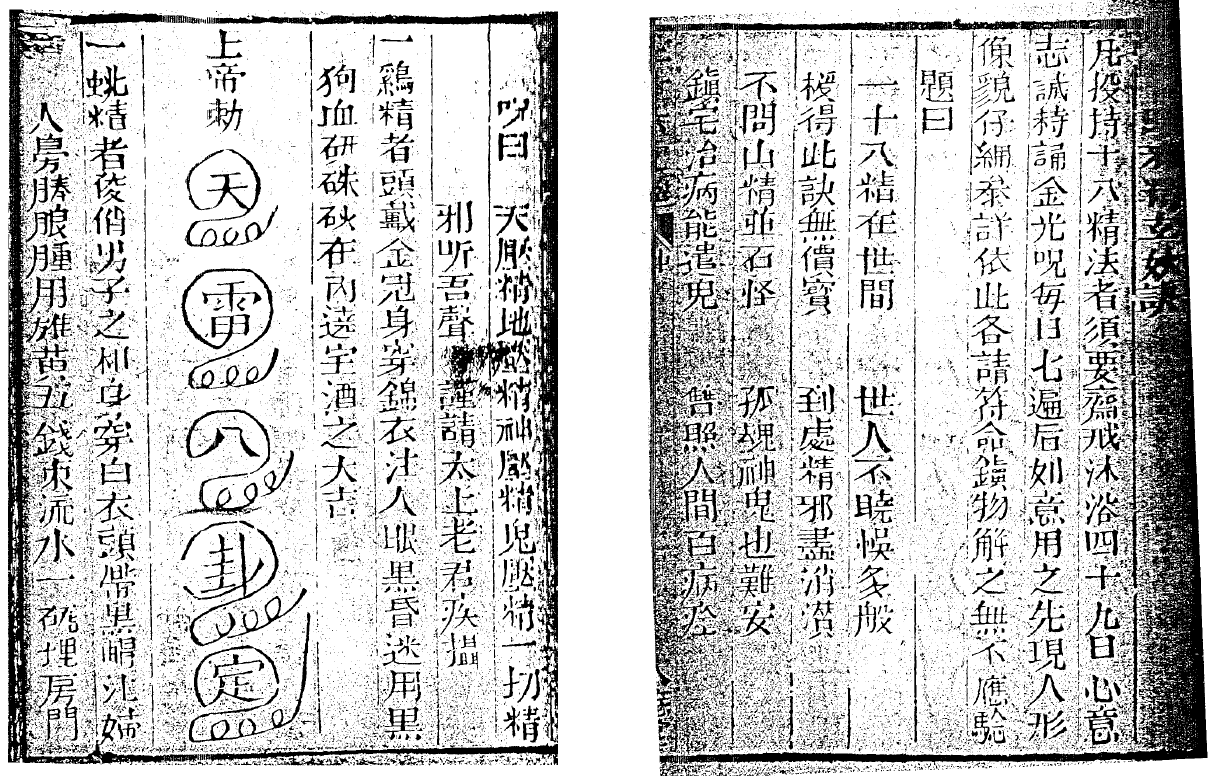 凡授持十八精法者須要齋戒沐浴四十九日心意
志誠持誦金光呪每日七遍后如意用之先現人形
像貌仔細叅詳依此各請符命鎮物解之無不應驗
題曰
一十八精在世間 世人不曉悞多般
援得此訣無價寳 到處精邪盡消潰
不問山精並石怪 孤魂神鬼也難安
鎮宅治病能遣鬼 普照人間百病痊
呪曰 天壓精地壓精神壓精鬼壓精一切精
邪听吾聲 謹請太上老君疾攝
一鷄精者頭戴金冠身穿錦衣注人眼黒昏迷用黒
狗血研硃砂在內遶宅洒之大吉
上帝勅 天 雷 八 卦 定
一蛇精者俊俏男子之相身穿白衣頭帶黒帽注婦
人身勝脹腫用雄黃五錢東流水一碗埋房門